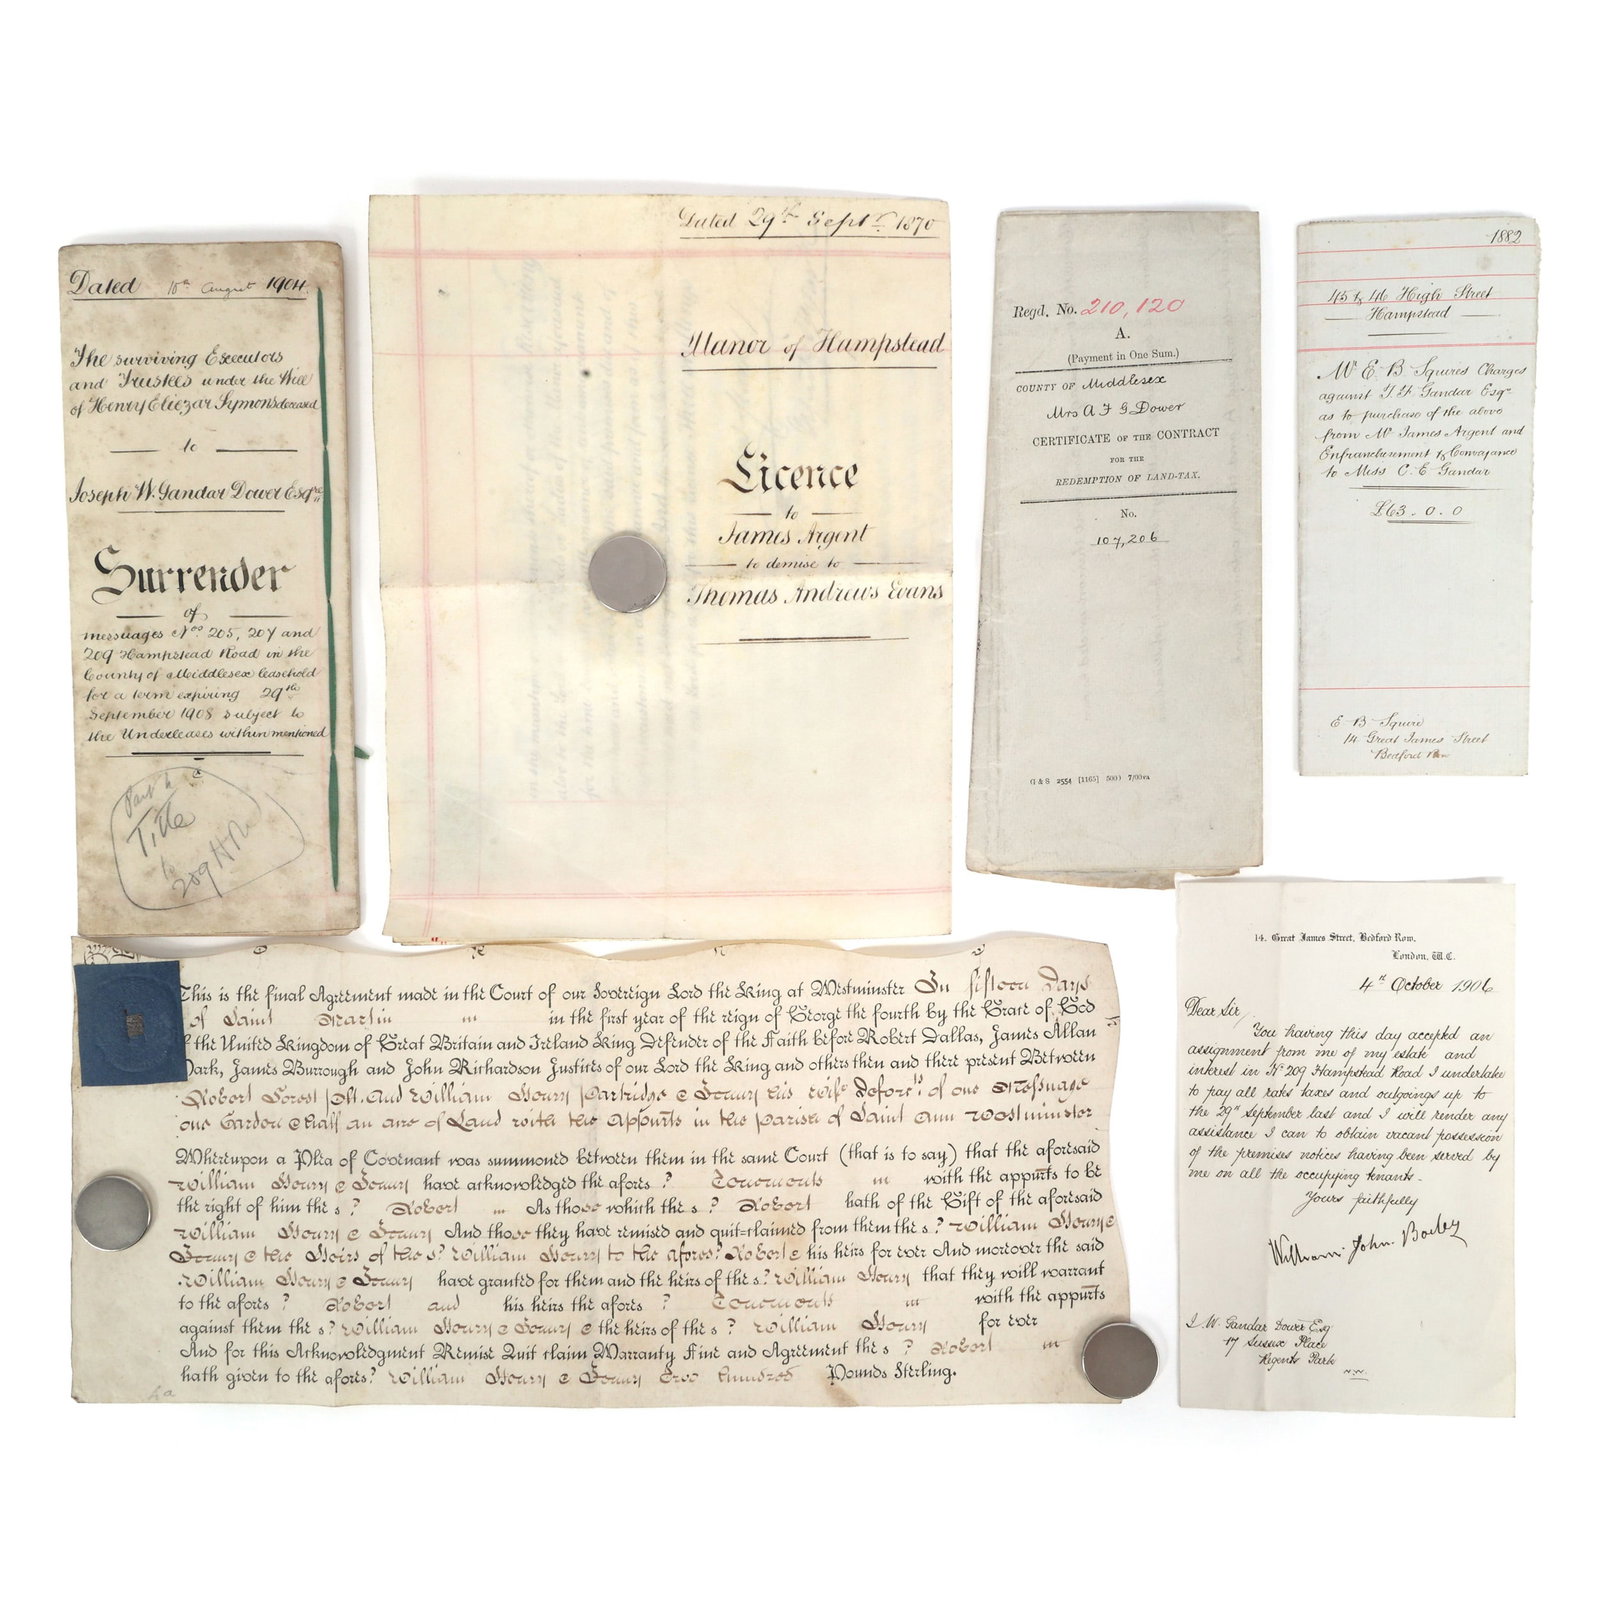 Dated 10th August 1904.
The surviving Executors
and Trustees under the Will
of Henry Eliezar Symons deceased
to
Joseph W. Gandar Dower Esqre
Surrender
of
messuages Nos. 205, 207 and
209 Hampstead Road in the
County of Middlesex leasehold
for a term expiring 29th
September 1908 subject to
the Underleases within mentioned
Part to
Title
to
209 HR
Dated 29th Septr. 1870
Manor of Hampstead
Licence
to
James Argent
to demise to
Thomas Andrews Evans
Regd. No. 210,120
A.
(Payment in One Sum.)
COUNTY OF Middlesex
Mrs A F G Dower
CERTIFICATE OF THE CONTRACT
FOR THE
REDEMPTION OF LAND-TAX.
No.
107,206
G & S 2554 [1165] 500 7/00
1882
45 & 46 High Street
Hampstead
Mr E B Squires Charges
against J. F. Gandar Esqre
as to purchase of the above
from Mr James Argent and
Enfranchisement & Conveyance
to Miss C. E Gandar
£63.0.0
E B Squire
14 Great James Street
Bedford Row
This is the final Agreement made in the Court of our Sovereign Lord the King at Westminster In fifteen Days
of Saint Martin in the first year of the reign of George the fourth by the Grace of God
f the United Kingdom of Great Britain and Ireland King Defender of the Faith before Robert Dallas, James Allan
Park, James Burrough and John Richardson Justices of our Lord the King and others then and there present Between
Robert Forest plt. And William Henry Partridge & Fanny his wife Deforts of one Messuage
one Garden & half an acre of Land with the Appurts in the parish of Saint Ann Westminster
Whereupon a Plea of Covenant was summoned between them in the same Court (that is to say) that the aforesaid
William Henry & Fanny have acknowledged the afores? Tenements with the appurts to be
the right of him the s? Robert As those which the s? Robert hath of the Gift of the aforesaid
William Henry & Fanny And those they have remised and quit-claimed from them the s? William Henry &
Fanny & the Heirs of the s? William Henry to the afores? Robert & his heirs for ever And moreover the said
William Henry & Fanny have granted for them and the heirs of the s? William Henry that they will warrant
to the afores? Robert and his heirs the afores? Tenements with the appurts
against them the s? William Henry & Fanny & the heirs of the s? William Henry for ever
And for this Acknowledgment Remise Quit claim Warranty Fine and Agreement the s? Robert
hath given to the afores? William Henry & Fanny Two hundred Pounds Sterling.
14, Great James Street, Bedford Row,
London, W.C.
4th October 1906
Dear Sir,
You having this day accepted an
assignment from me of my estate and
interest in No 209 Hampstead Road I undertake
to pay all rates taxes and outgoings up to
the 29th September last and I will render any
assistance I can to obtain vacant possession
of the premises notices having been served by
me on all the occupying tenants.
Yours faithfully
William John
J. W. Gandar Dower Esq
17 Sussex Place
Regents Park